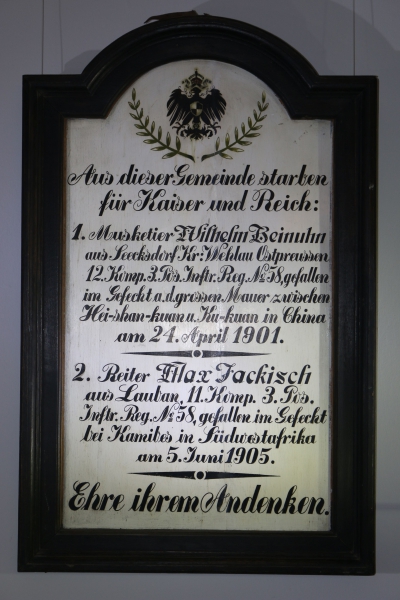 Aus dieser Gemeinde starben
für Kaiser und Reich:
1. Musketier Wilhelm Beinuhn
aus Leecksdorf Kr: Wehlau Ostpreussen
12. Komp. 3. Pos. Inftr. Reg. No 58, gefallen
im Gefecht a. d. grossen Mauer zwischen
Hei-shan-kuan u. Ku-kuan in China
am 24. April 1901.
2. Reiter Max Jackisch
aus Lauban, 11. Komp. 3. Pos.
Inftr. Reg. No 58, gefallen im Gefecht
bei Kamibes in Südwestafrika
am 5. Juni 1905.
Ehre ihrem Andenken.